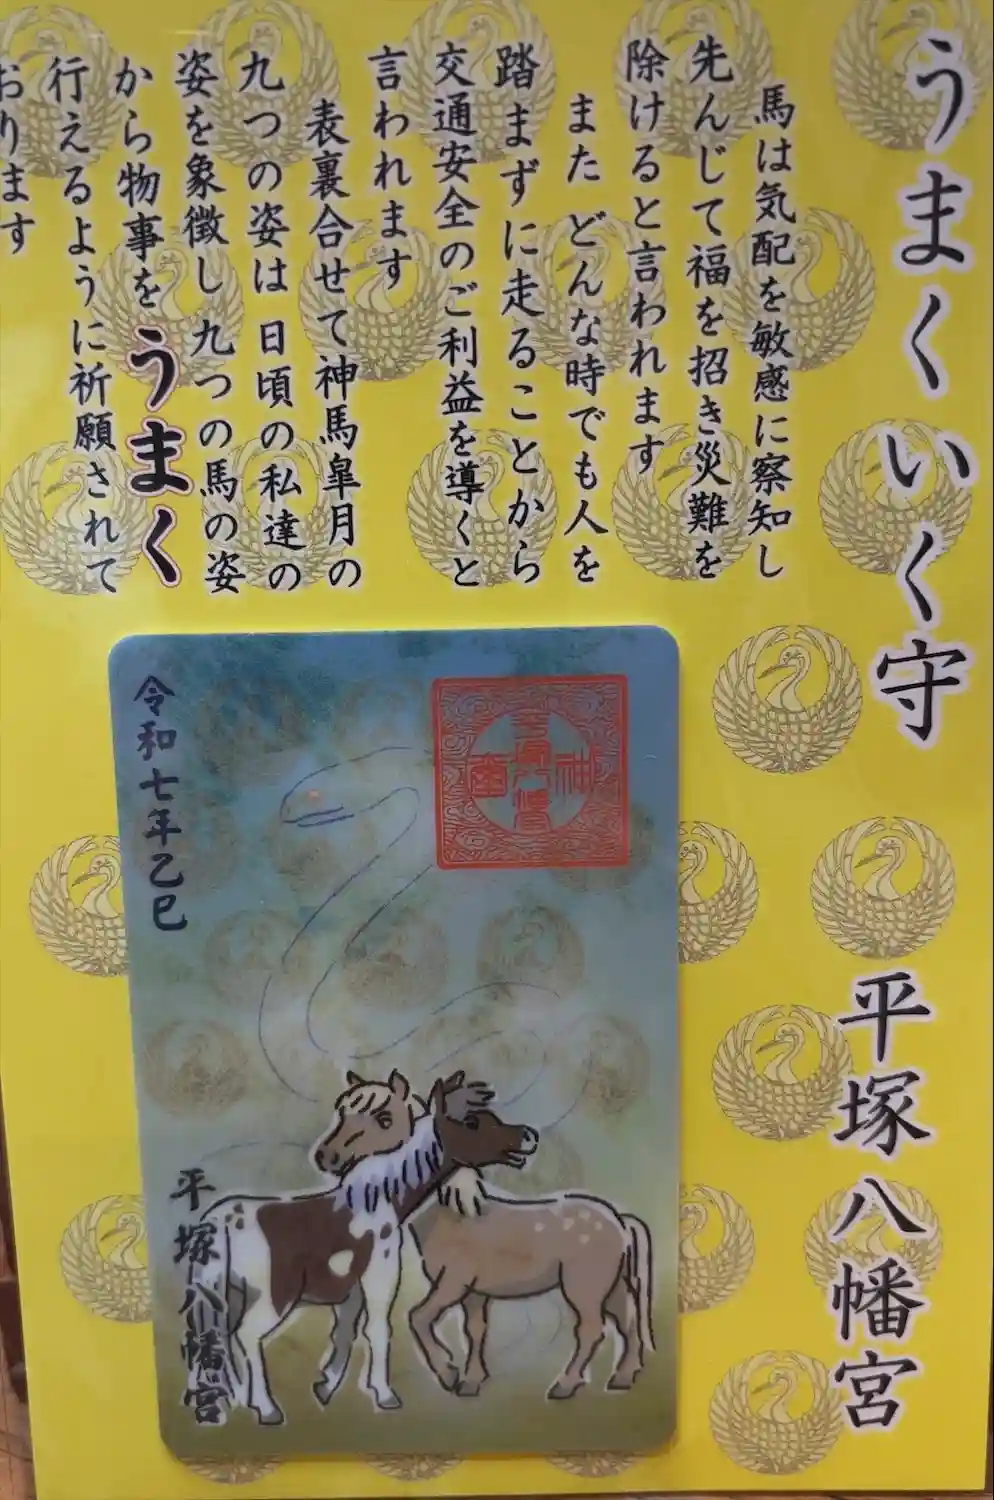 うまくいく守 平塚八幡宮
馬は気配を敏感に察知し
先んじて福を招き災難を
除けると言われます
また どんな時でも人を
踏まずに走ることから
交通安全のご利益を導くと
言われます
表裏合せて神馬皐月の
九つの姿は 日頃の私達の
姿を象徴し九つの馬の姿
から物事をうまく
行えるように祈願されて
おります
令和七年乙巳
平塚八幡宮